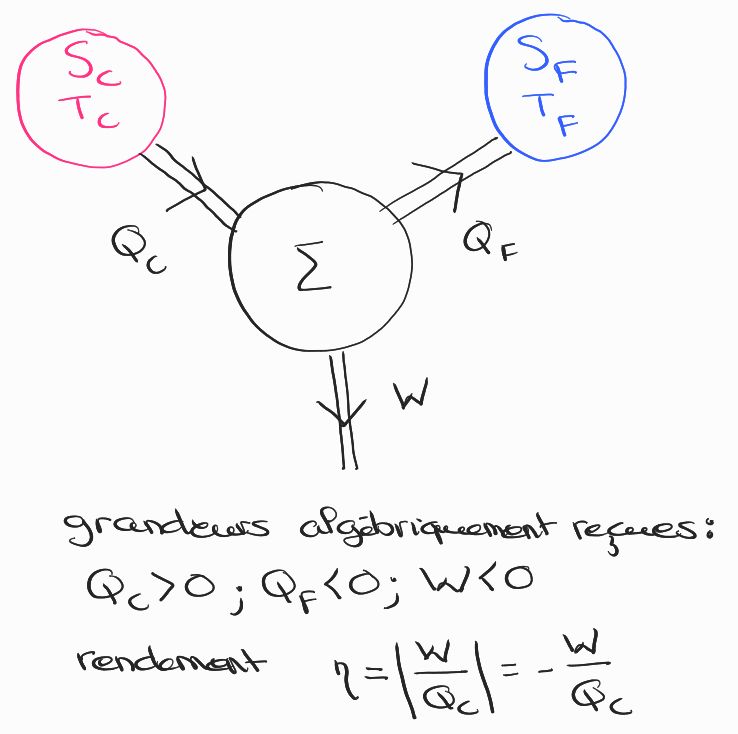 S_C
T_C
S_F
T_F
Q_C
Σ
Q_F
W
grandeurs algébriquement reçues:
Q_C>0 ; Q_F<0; W<0
rendement η = |W/Q_C| = - W/Q_C